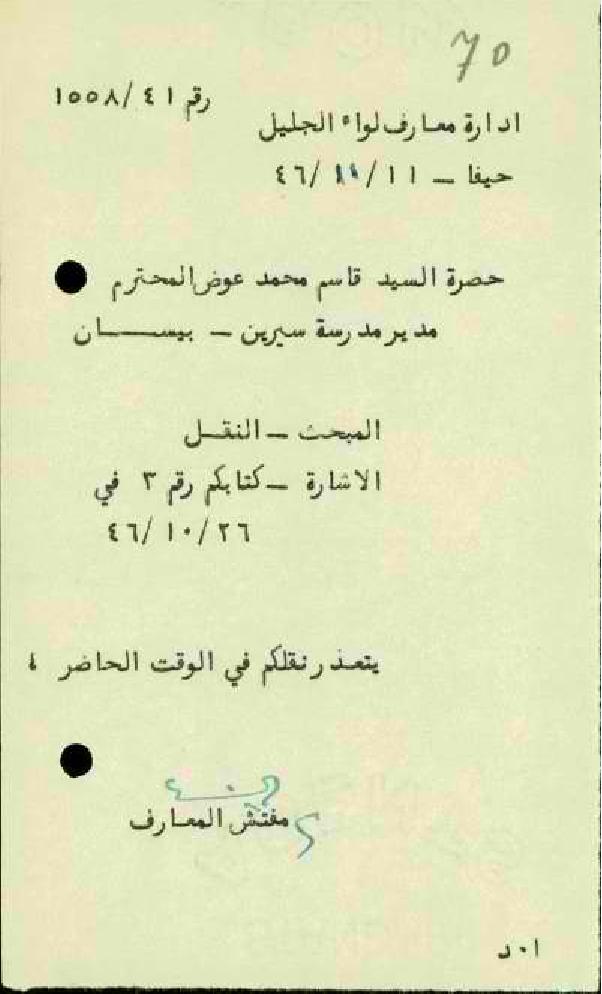 70
رقم ١٥٥٨/٤١
ادارة معارف لواء الجليل
حيفا - ١١/١١/٤٦
حصرة السيد قاسم محمد عوض المحترم
مدير مدرسة سيرين - بيســـان
المبحث - النقـل
الاشارة - كتابكم رقم ٣ في
٤٦/١٠/٢٦
يتعذر نقلكم في الوقت الحاضر ،
مفتش المعارف
ا٠د